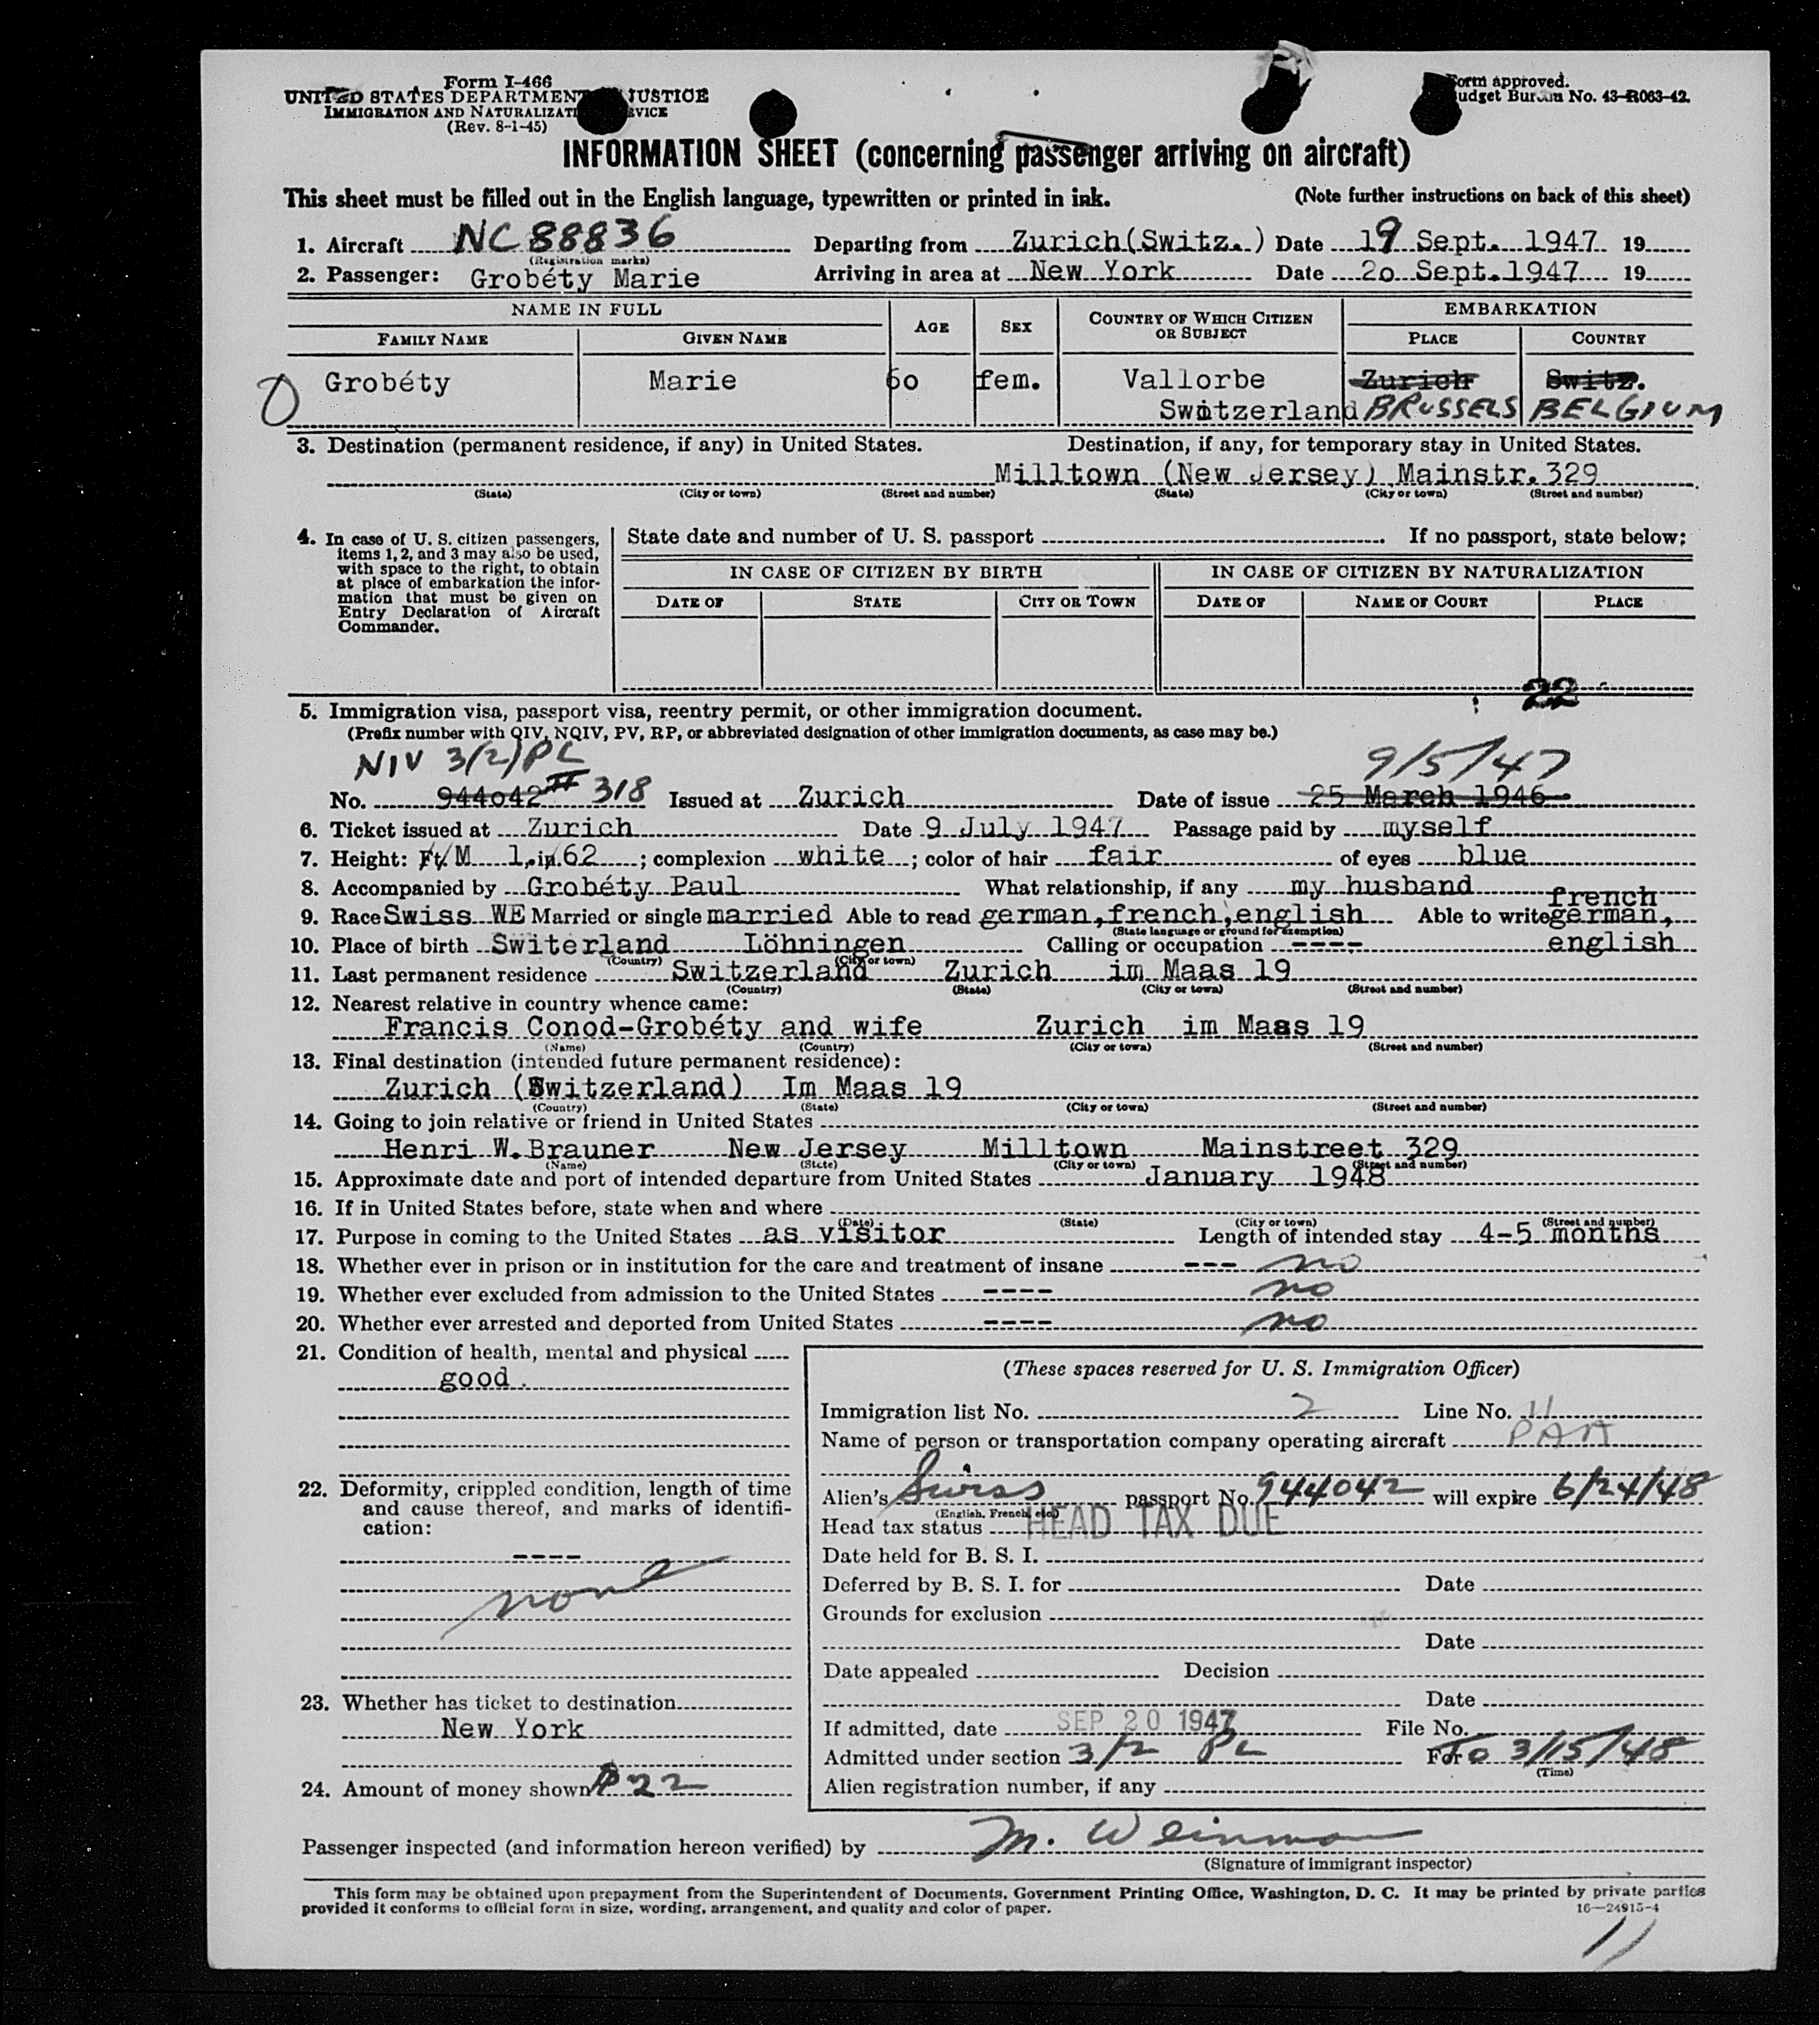 Form I-466
UNITED STATES DEPARTMENT JUSTICE
IMMIGRATION AND NATURALIZATI VICE
(Rev. 8-1-45)
Form approved.
Budget Bureau No. 43-R063-42.
INFORMATION SHEET (concerning passenger arriving on aircraft)
This sheet must be filled out in the English language, typewritten or printed in ink. (Note further instructions on back of this sheet)
1. Aircraft NC 88836 Departing from Zurich(Switz.) Date 19 Sept. 1947 19
(Registration marks)
2. Passenger: Grobéty Marie Arriving in area at New York Date 2o Sept.1947 19
NAME IN FULL AGE SEX COUNTRY OF WHICH CITIZEN OR SUBJECT EMBARKATION
FAMILY NAME GIVEN NAME PLACE COUNTRY
Grobéty Marie 6o fem. Vallorbe Zurich Switz.
Switzerland BRUSSELS BELGIUM
3. Destination (permanent residence, if any) in United States. Destination, if any, for temporary stay in United States.
Milltown (New Jersey) Mainstr.329
(State) (City or town) (Street and number) (State) (City or town) (Street and number)
4. In case of U. S. citizen passengers, items 1, 2, and 3 may also be used, with space to the right, to obtain at place of embarkation the information that must be given on Entry Declaration of Aircraft Commander.
State date and number of U. S. passport If no passport, state below:
IN CASE OF CITIZEN BY BIRTH IN CASE OF CITIZEN BY NATURALIZATION
DATE OF STATE CITY OR TOWN DATE OF NAME OF COURT PLACE
22
5. Immigration visa, passport visa, reentry permit, or other immigration document.
(Prefix number with QIV, NQIV, PV, RP, or abbreviated designation of other immigration documents, as case may be.)
NIV 3(2)PL 9/5/47
No. 944o42 318 Issued at Zurich Date of issue 25 March 1946
6. Ticket issued at Zurich Date 9 July 1947 Passage paid by myself
7. Height: Ft. M 1, in. 62 ; complexion white ; color of hair fair of eyes blue
8. Accompanied by Grobéty Paul What relationship, if any my husband
french
9. Race Swiss WE Married or single married Able to read german,french,english Able to write german,
(State language or ground for exemption)
10. Place of birth Switerland Löhningen Calling or occupation ---- english
(Country) (City or town)
11. Last permanent residence Switzerland Zurich im Maas 19
(Country) (State) (City or town) (Street and number)
12. Nearest relative in country whence came:
Francis Conod-Grobéty and wife Zurich im Maas 19
(Name) (Country) (City or town) (Street and number)
13. Final destination (intended future permanent residence):
Zurich (Switzerland) Im Maas 19
(Country) (State) (City or town) (Street and number)
14. Going to join relative or friend in United States
Henri W.Brauner New Jersey Milltown Mainstreet 329
(Name) (State) (City or town) (Street and number)
15. Approximate date and port of intended departure from United States January 1948
16. If in United States before, state when and where
(Date) (State) (City or town) (Street and number)
17. Purpose in coming to the United States as visitor Length of intended stay 4-5 months
18. Whether ever in prison or in institution for the care and treatment of insane --- no
19. Whether ever excluded from admission to the United States ---- no
20. Whether ever arrested and deported from United States ---- no
21. Condition of health, mental and physical
good.
22. Deformity, crippled condition, length of time and cause thereof, and marks of identification:
----
none
23. Whether has ticket to destination
New York
24. Amount of money shown $22
(These spaces reserved for U. S. Immigration Officer)
Immigration list No. 2 Line No. 11
Name of person or transportation company operating aircraft PAA
Alien's Swiss passport No. 944042 will expire 6/24/48
(English, French, etc.)
Head tax status HEAD TAX DUE
Date held for B. S. I.
Deferred by B. S. I. for Date
Grounds for exclusion
Date
Date appealed Decision
Date
If admitted, date SEP 20 1947 File No.
Admitted under section 3/2 PL For To 3/15/48
(Time)
Alien registration number, if any
Passenger inspected (and information hereon verified) by M. Weinman
(Signature of immigrant inspector)
This form may be obtained upon prepayment from the Superintendent of Documents, Government Printing Office, Washington, D. C. It may be printed by private parties
provided it conforms to official form in size, wording, arrangement, and quality and color of paper. 16—24915-4
11